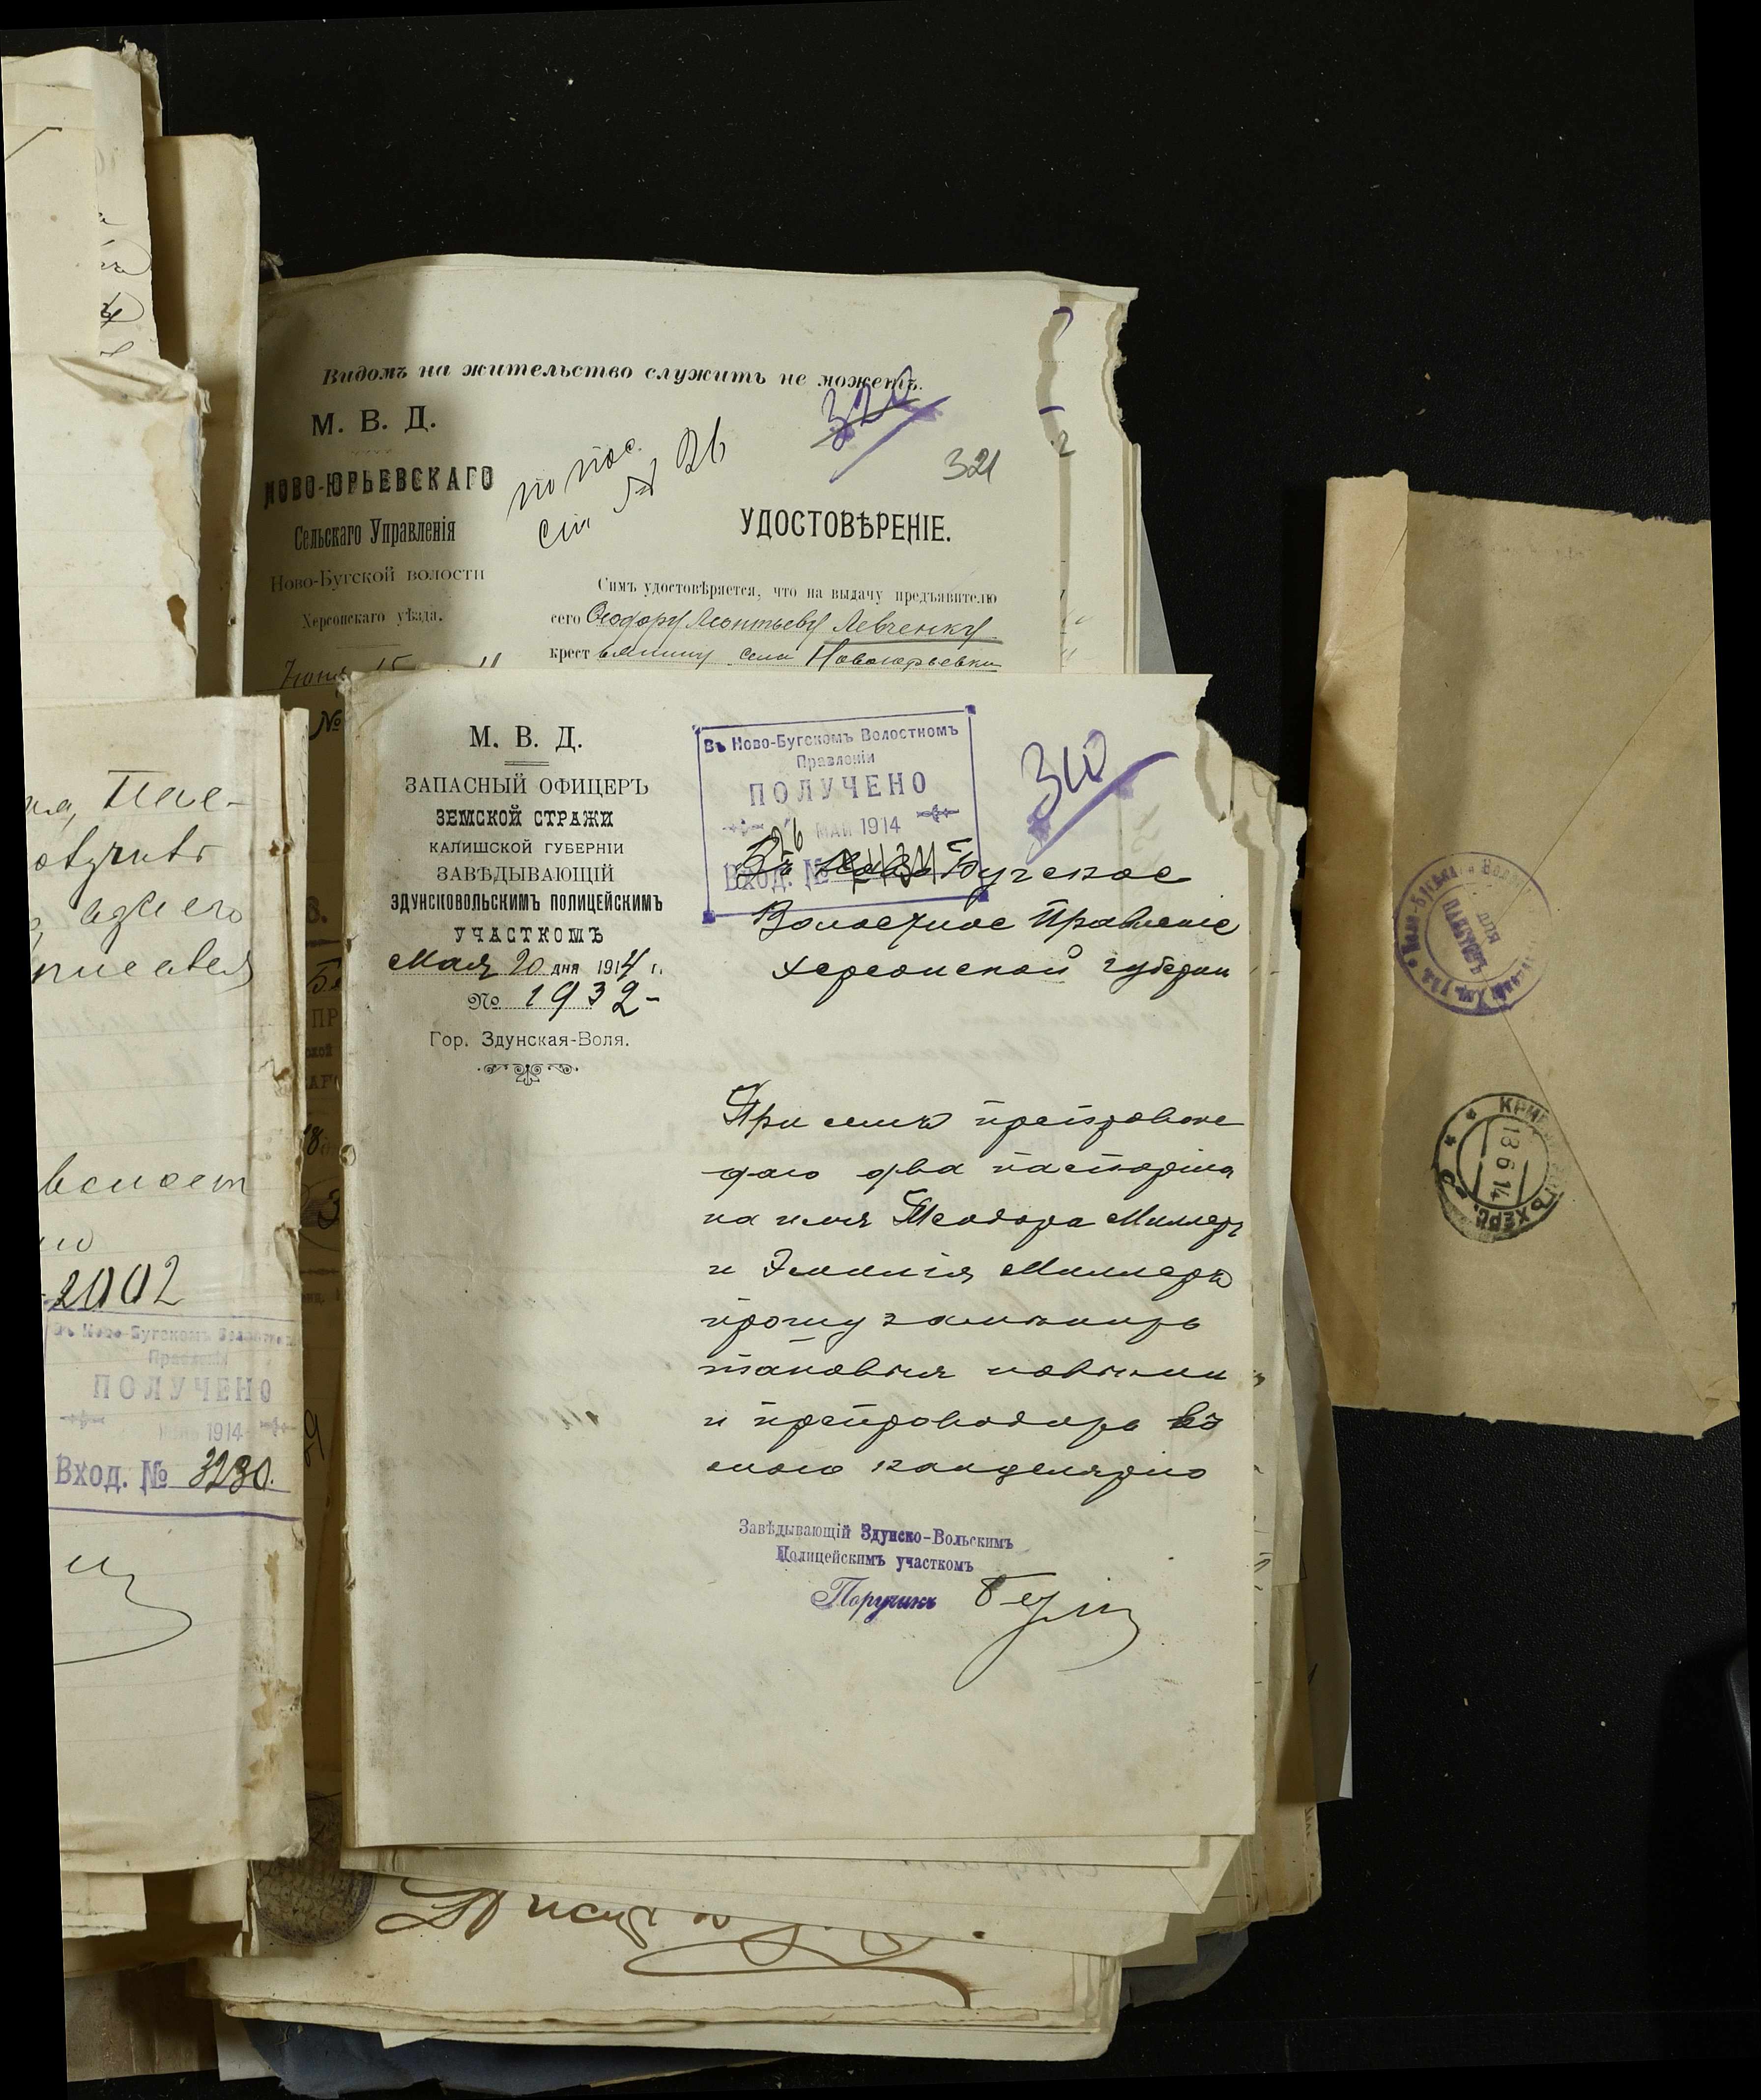 Видомъ на жительство служить не можетъ.
М. В. Д.
НОВО-ЮРЬЕВСКАГО
Сельскаго Управленія
Ново-Бугской волости
Херсонскаго уѣзда.
320
321
УДОСТОВѢРЕНІЕ.
Симъ удостовѣряется, что на выдачу предъявителю
сего Ѳеодору Леонтьеву Левченку
крестьянину села Новоюрьевки
№
М. В. Д.
ЗАПАСНЫЙ ОФИЦЕРЪ
ЗЕМСКОЙ СТРАЖИ
КАЛИШСКОЙ ГУБЕРНІИ
ЗАВѢДЫВАЮЩІЙ
ЗДУНСКОВОЛЬСКИМЪ ПОЛИЦЕЙСКИМЪ
УЧАСТКОМЪ
Мая 20 дня 1914 г.
№ 1932-
Гор. Здунская-Воля.
Въ Ново-Бугскомъ Волостномъ
Правленіи
ПОЛУЧЕНО
26 МАЙ 1914
Вход. №
310
Въ Ново Бугское
Волостное Правленіе
Херсонской губерніи
При семъ препровож
даю два паспорта
на имя Теодора Миллеръ
и Эмилія Миллеръ
прошу замѣнить
таковыя новыми
и препроводить въ
мою канцелярію
Завѣдывающій Здунско-Вольскимъ
Полицейскимъ участкомъ
Поручикъ
2002
Въ Ново-Бугскомъ Волостномъ
Правленіи
ПОЛУЧЕНО
1914
Вход. № 3230.
ДЛЯ
ПАКЕТОВЪ
13 6 14